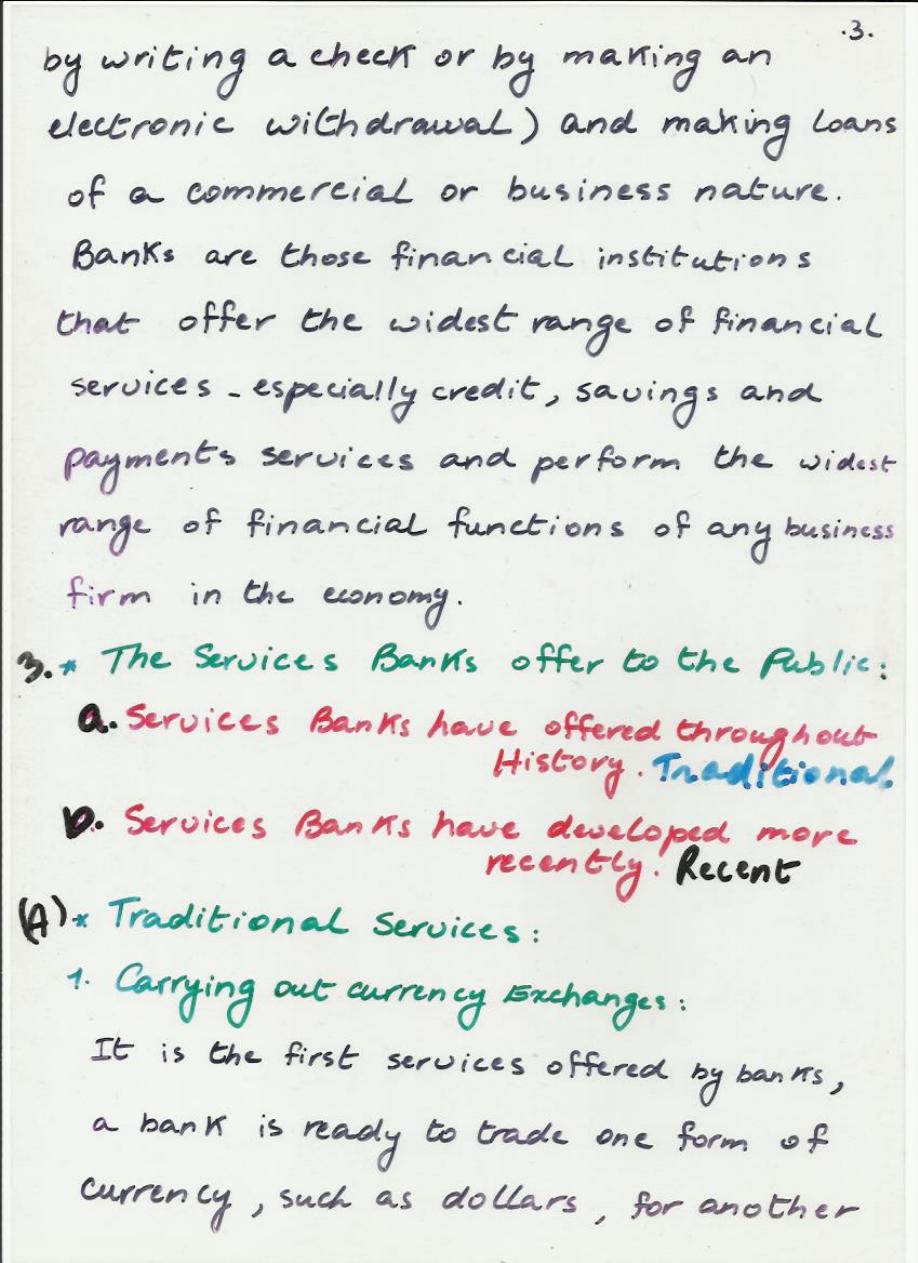 .3.
by writing a check or by making an
electronic withdrawal) and making loans
of a commercial or business nature.
Banks are those financial institutions
that offer the widest range of financial
services - especially credit, savings and
payments services and perform the widest
range of financial functions of any business
firm in the economy.
3. * The Services Banks offer to the Public:
a. Services Banks have offered throughout
History. Traditional
b. Services Banks have developed more
recently. Recent
(A) * Traditional Services:
1. Carrying out currency Exchanges:
It is the first services offered by banks,
a bank is ready to trade one form of
currency, such as dollars, for another